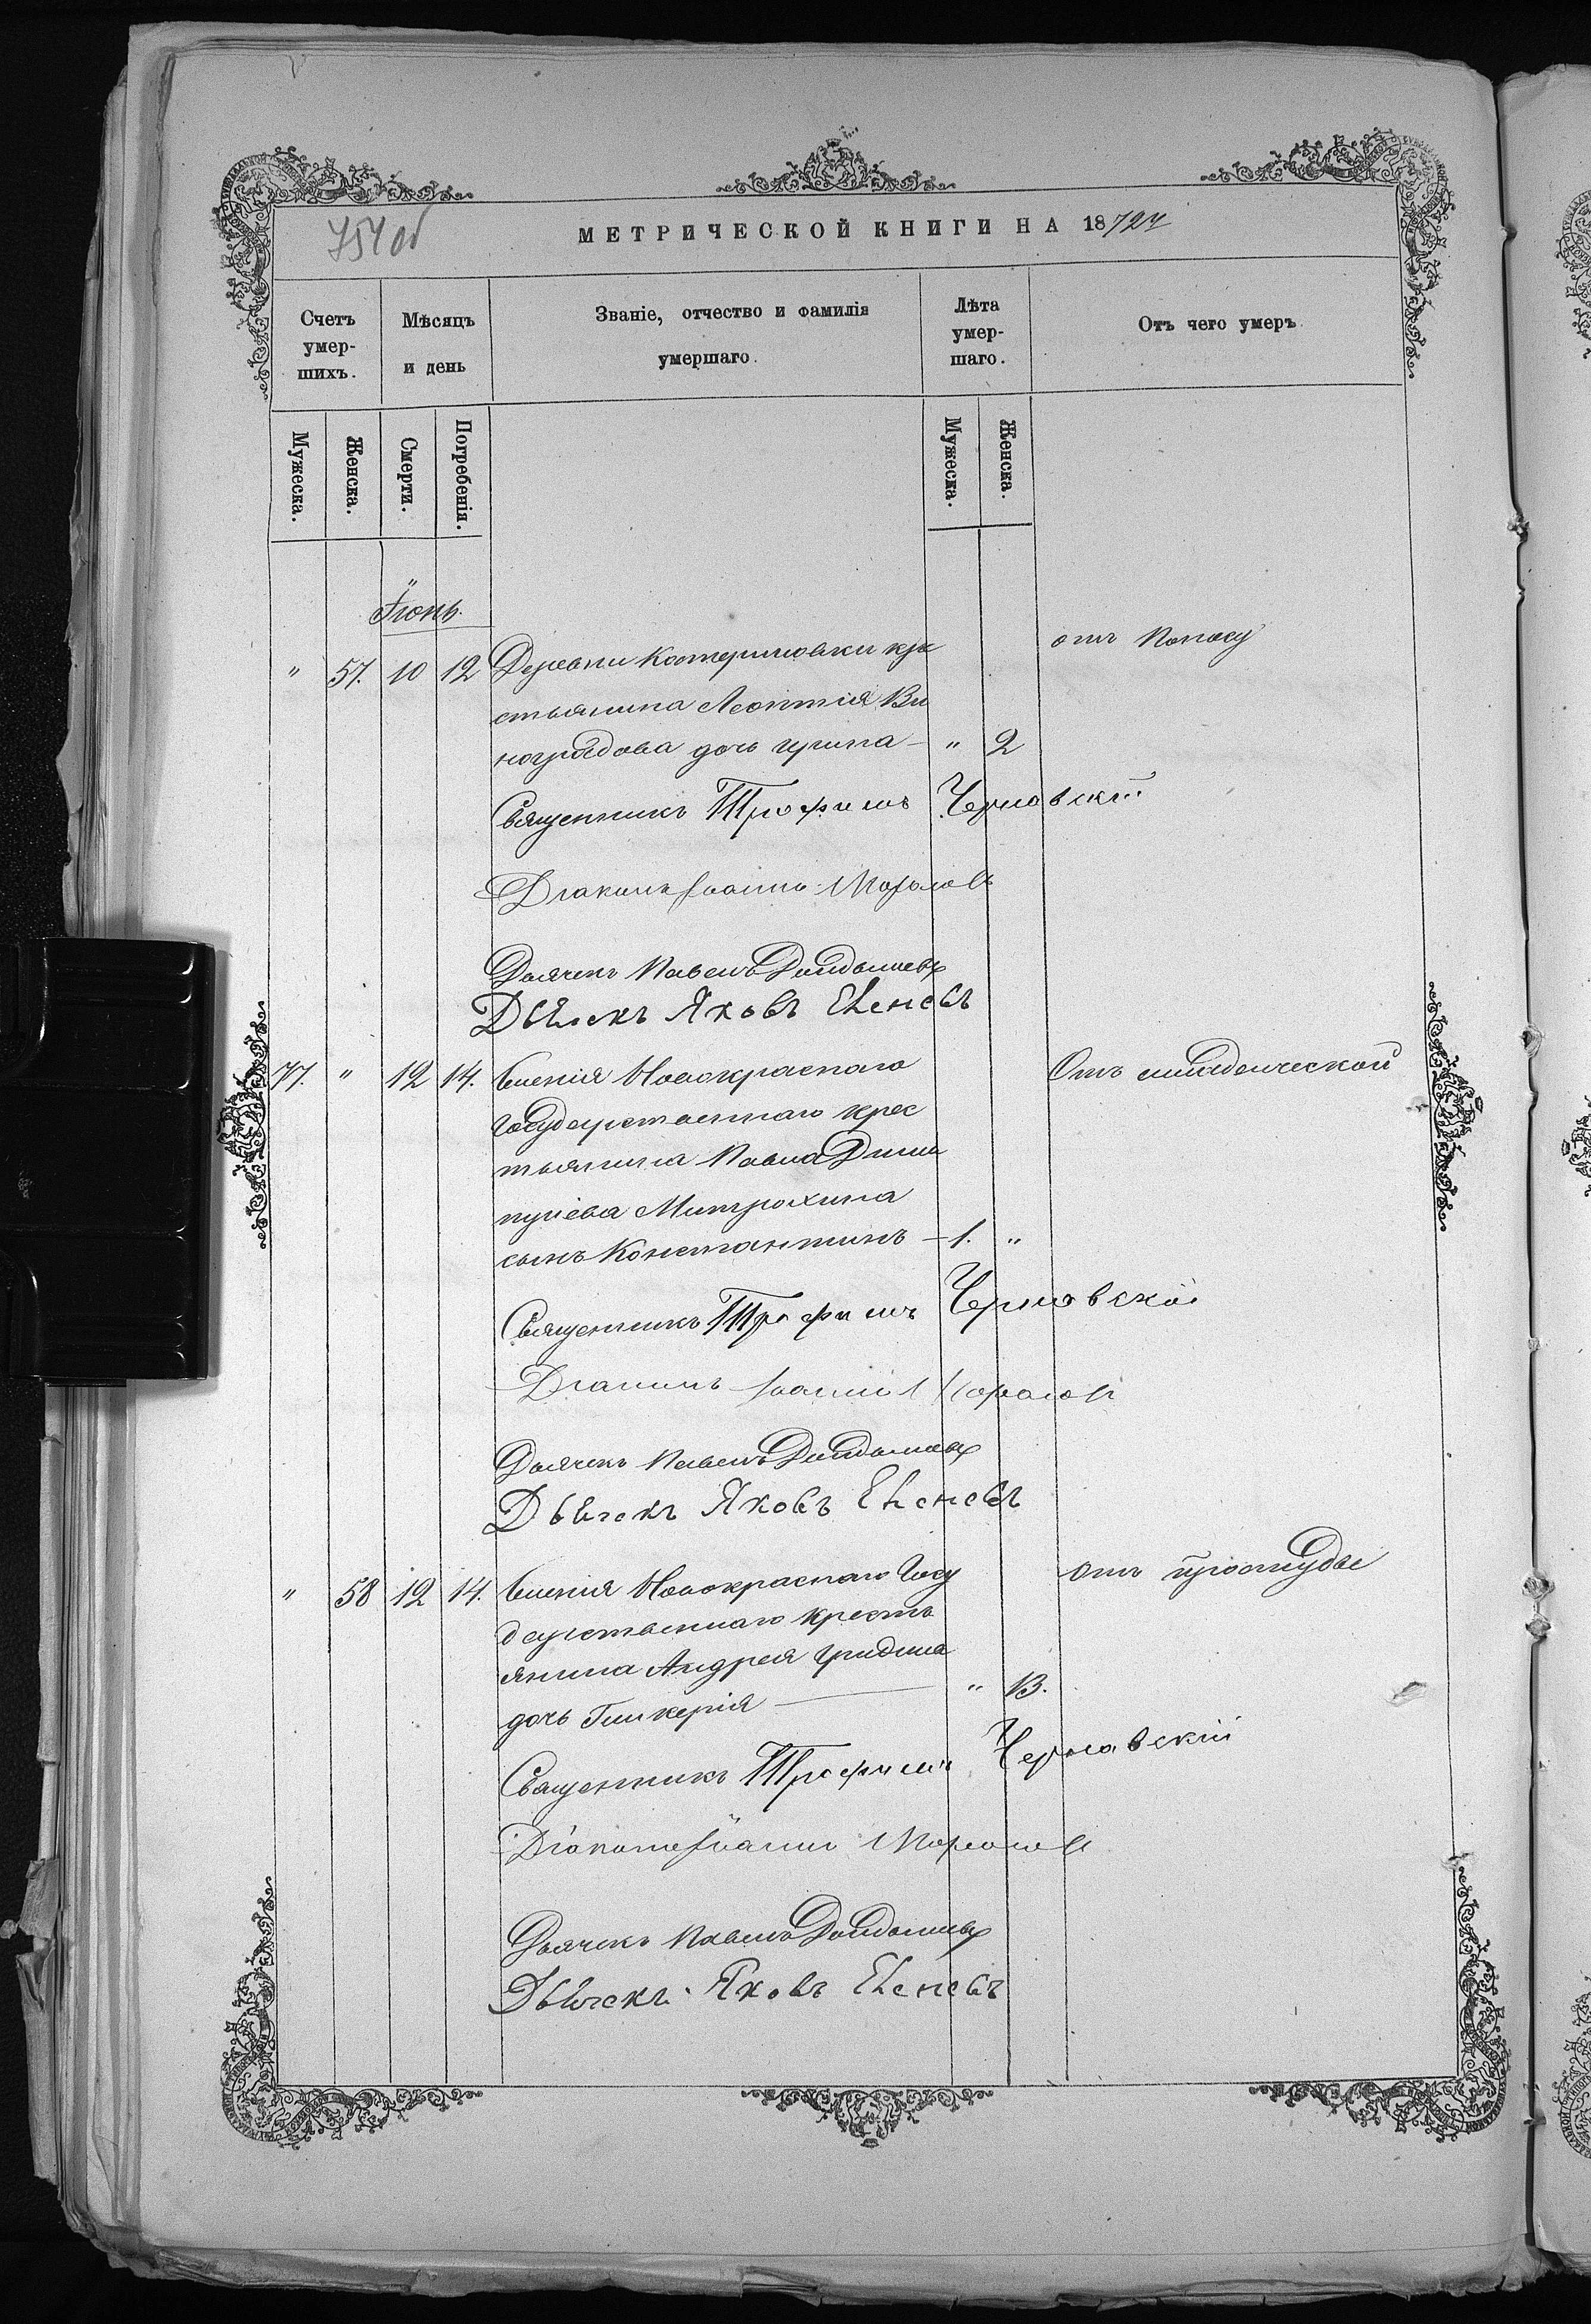 754 об
МЕТРИЧЕСКОЙ КНИГИ НА 1872 г
Счетъ умер-шихъ.
Мѣсяцъ и день
Званіе, отчество и фамилія умершаго.
Лѣта умер-шаго.
Отъ чего умеръ
Мужеска.
Женска.
Смерти.
Погребенія.
Мужеска.
Женска.
Іюнь.
" 57. 10 12 Деревни Катериновки кре отъ поносу
стьянина Леонтія Ви
ноградова дочь Ирина - " 2
Священникъ Трофимъ Чернавскій
Діаконъ Іоаннъ Морозовъ
Дьячекъ Павелъ
Дьячекъ Яковъ Еленевъ
77. " 12 14. Селенія Новокраснаго Отъ младенческой
государственнаго крес
тьянина Павла
Митрохина
сынъ Константинъ - 1. "
Священникъ Трофимъ Чернавскій
Діаконъ Іоаннъ Морозовъ
Дьячекъ Павелъ
Дьячекъ Яковъ Еленевъ
" 58 12 14. Селенія Новокраснаго Госу отъ простуды
дарственнаго кресть
янина Андрея Гридина
дочь Гликерія " 13.
Священникъ Трофимъ Чернавскій
Діаконъ Іоаннъ Морозовъ
Дьячекъ Павелъ
Дьячекъ Яковъ Еленевъ